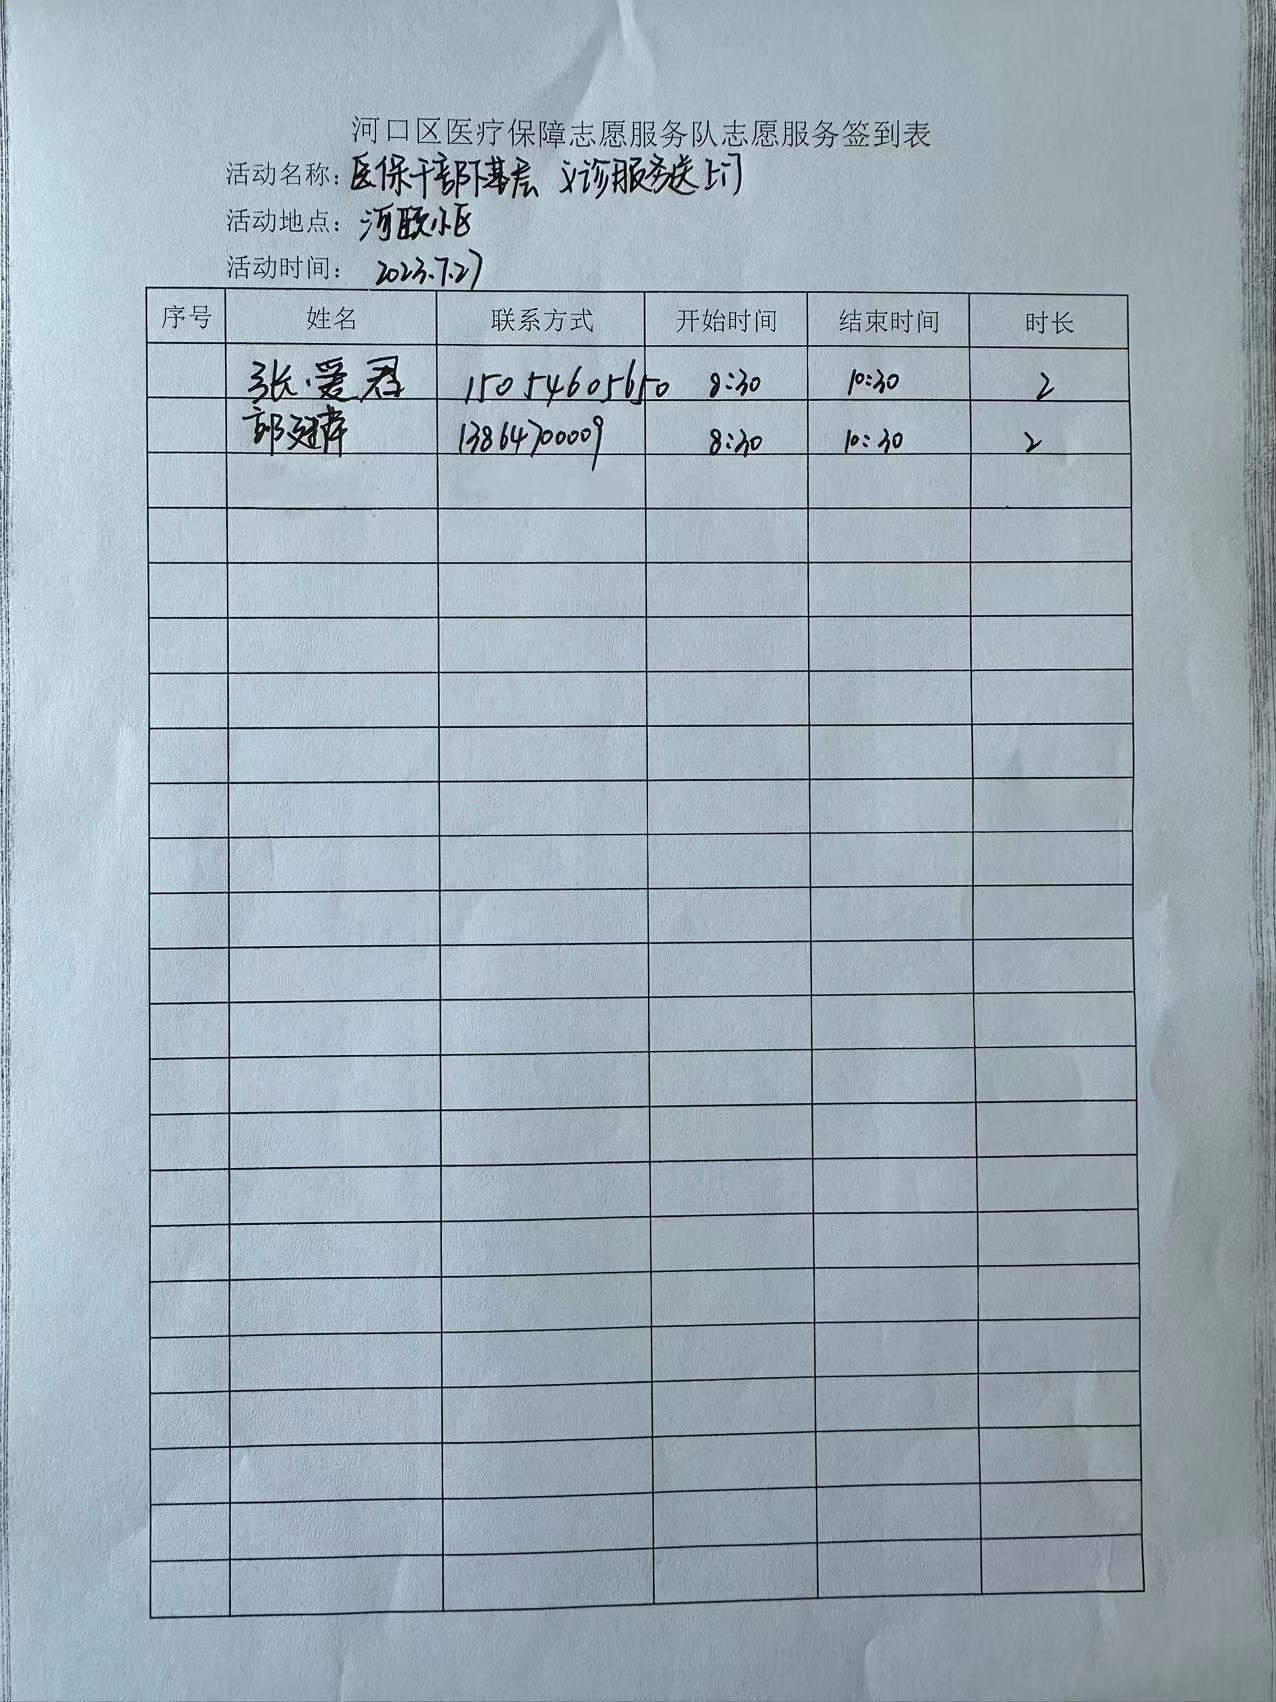 河口区医疗保障志愿服务队志愿服务签到表
活动名称：医保干部下基层 义诊服务送上门
活动地点：河颐小区
活动时间： 2023.7.27
序号 姓名 联系方式 开始时间 结束时间 时长
张爱君 15054605650 8:30 10:30 2
郭建 13864700009 8:30 10:30 2